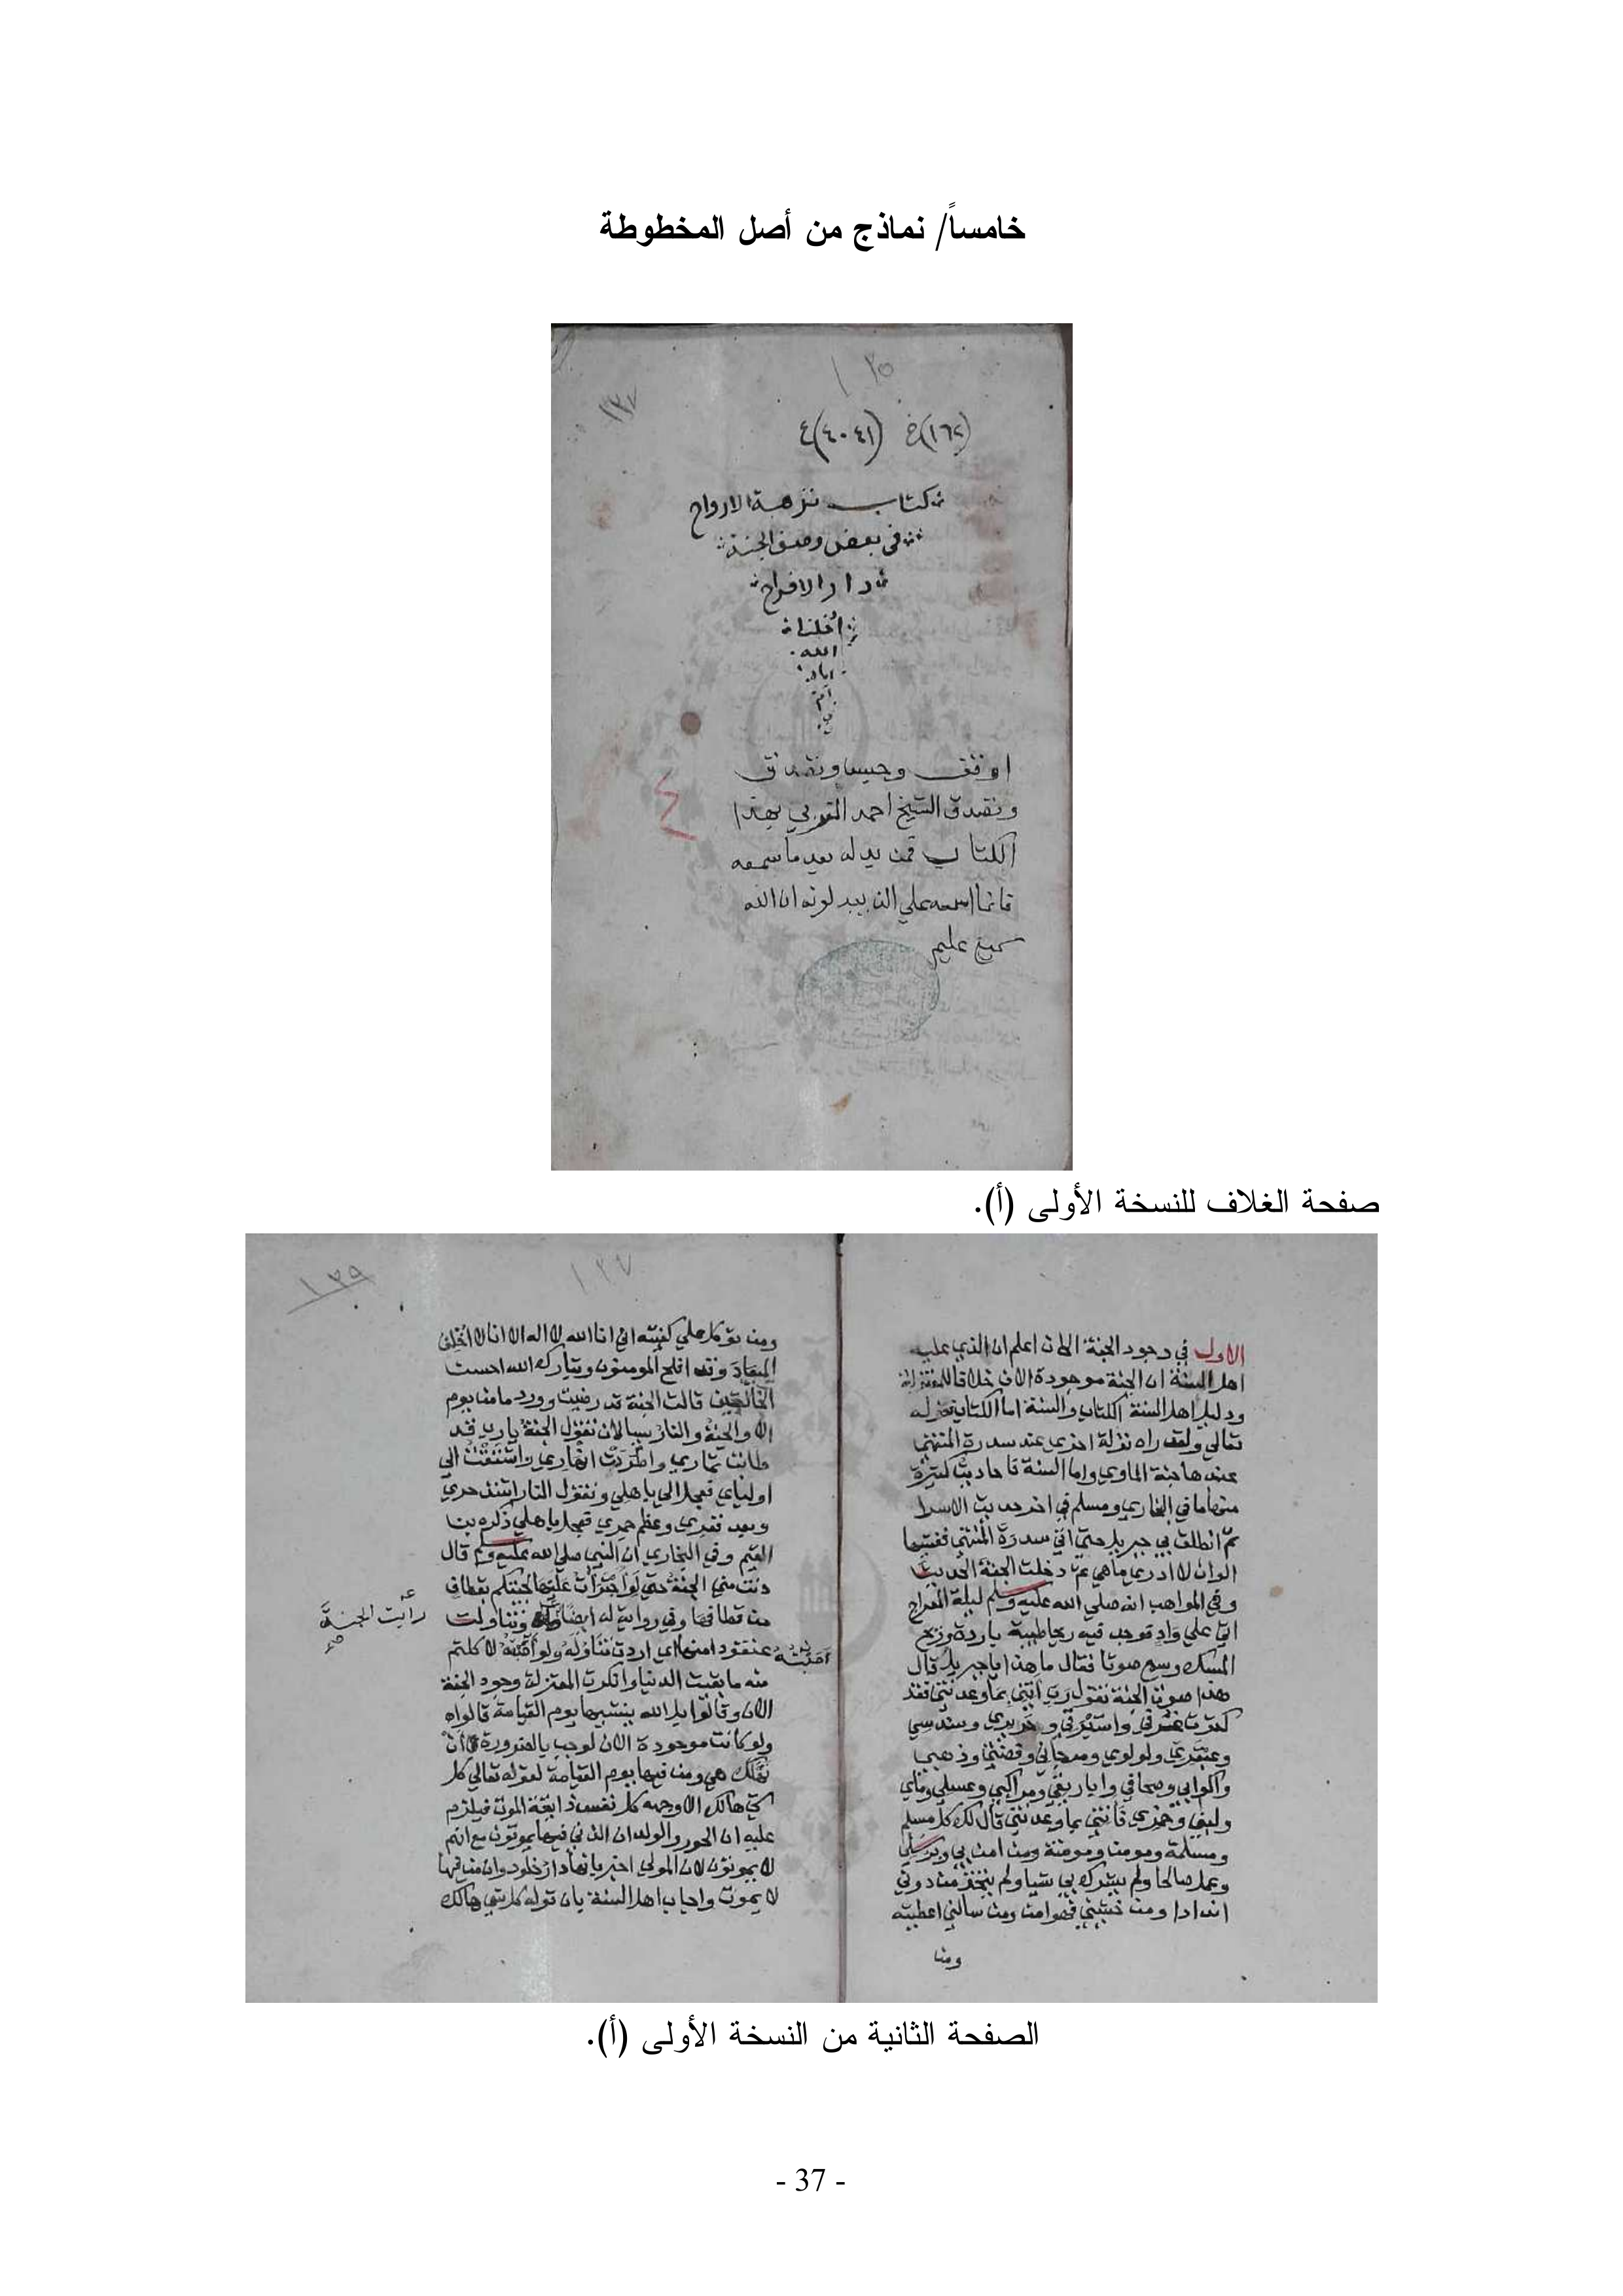 خامساً/ نماذج من أصل المخطوطة
١٣٥
١٣٧
(١٦٢)خ (٤٠٤١)ع
كتاب نزهة الارواح
في بعض وصف الجنة
دار الافراح
ادخلنا
الله
اوقف وحبس وتصدق
وتصدق الشيخ احمد بهذا
الكتاب فمن بدله بعد ما سمعه
فانما اسمه علي الذ يبدلونه ان الله
سميع عليم
صفحة الغلاف للنسخة الأولى (أ).
الاول في وجود الجنة الان اعلم ان الذي عليه
اهل السنة ان الجنة موجودة الان خلافا للمعتزلة
ودليل اهل السنة الكتاب والسنة اما الكتاب فقوله
تعالى ولقد راه نزلة اخرى عند سدرة المنتهى
عندها جنة الماوي واما السنة فاحاديث كثيرة
منها ما في البخاري ومسلم في اخر حديث الاسرا
ثم انطلق بي جبريل حتى اتى سدرة المنتهى فغشيها
الوان لا ادري ما هي ثم دخلت الجنة الحديث
وفي المواهب انه صلى الله عليه وسلم ليلة المعراج
اتى علي واد فوجد فيه ريحا طيبة باردة وريح
المسك وسمع صوتا فقال ما هذا يا جبريل قال
هذا صوت الجنة تقول رب اتني بما وعدتني فقد
كثرت غرفي واستبرقي وحريري وسندسي
وعبقري ولولوي ومرجاني وفضتي وذهبي
واكوابي وصحافي واباريقي ومراكبي وعسلي وماي
ولبني وخمري فاتني بما وعدتني قال لك كل مسلم
ومسلمة ومومن ومومنة ومن امن بي وبرسلي
وعمل صالحا ولم يشرك بي شيا ولم يتخذ من دوني
اندادا ومن خشيني فهو امن ومن سالني اعطيته
ومن
١٣٩
ومن توكل علي كفيته اني انا الله لا اله الا انا لا اخلف
الميعاد وقد افلح المومنون وتبارك الله احسن
الخالقين قالت الجنة قد رضيت وورد ما من يوم
الا والجنة والنار يسالان تقول الجنة يا رب قد
طابت ثماري واطردت انهاري واشتقت الي
اولياي فعجل الي باهلي وتقول النار اشتد حري
وبعد قعري وعظم جمري فعجل باهلي ذكره بن
القيم وفي البخاري ان النبي صلى الله عليه وسلم قال
دنت مني الجنة حتى لو اجترات عليها لجئتكم بقطاف
من قطافها وفي رواية له ايضا وتناولت
رايت الجنة
عنقودا اي اردت تناوله ولو لا كلتم
منه ما بقيت الدنيا وانكرت المعتزلة وجود الجنة
الان وقالوا بل الله ينشيها يوم القيامة قالوا
ولو كانت موجودة الان لوجب بالضرورة ان
تهلك هي ومن فيها يوم القيامة لقوله تعالى كل
شي هالك الا وجهه كل نفس ذايقة الموت فيلزم
عليه ان الحور والولدان الذي فيها يموتون مع انهم
لا يموتون لان المولى اخبر بانها دار خلود وان من فيها
لا يموت واجاب اهل السنة بان قوله كل شي هالك
الصفحة الثانية من النسخة الأولى (أ).
- 37 -